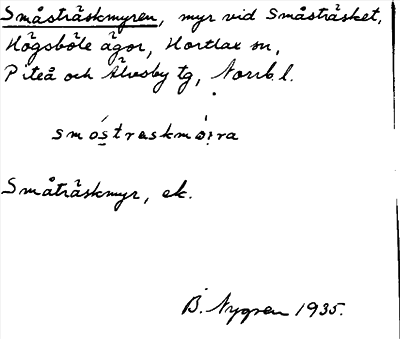 Småsträskmyren, myr vid Småsträsket,
Högsböle ägor, Hortlax sn,
Piteå och Älvsby tg, Norrb. l.
smóstraskmòira
Småträskmyr, ek.
B. Nygren 1935.